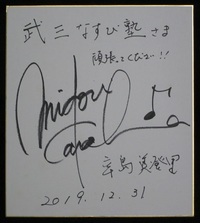 武三なすび塾さま
頑張ってくださー!!
Midori
Karashima
辛島美登里
2019.12.31